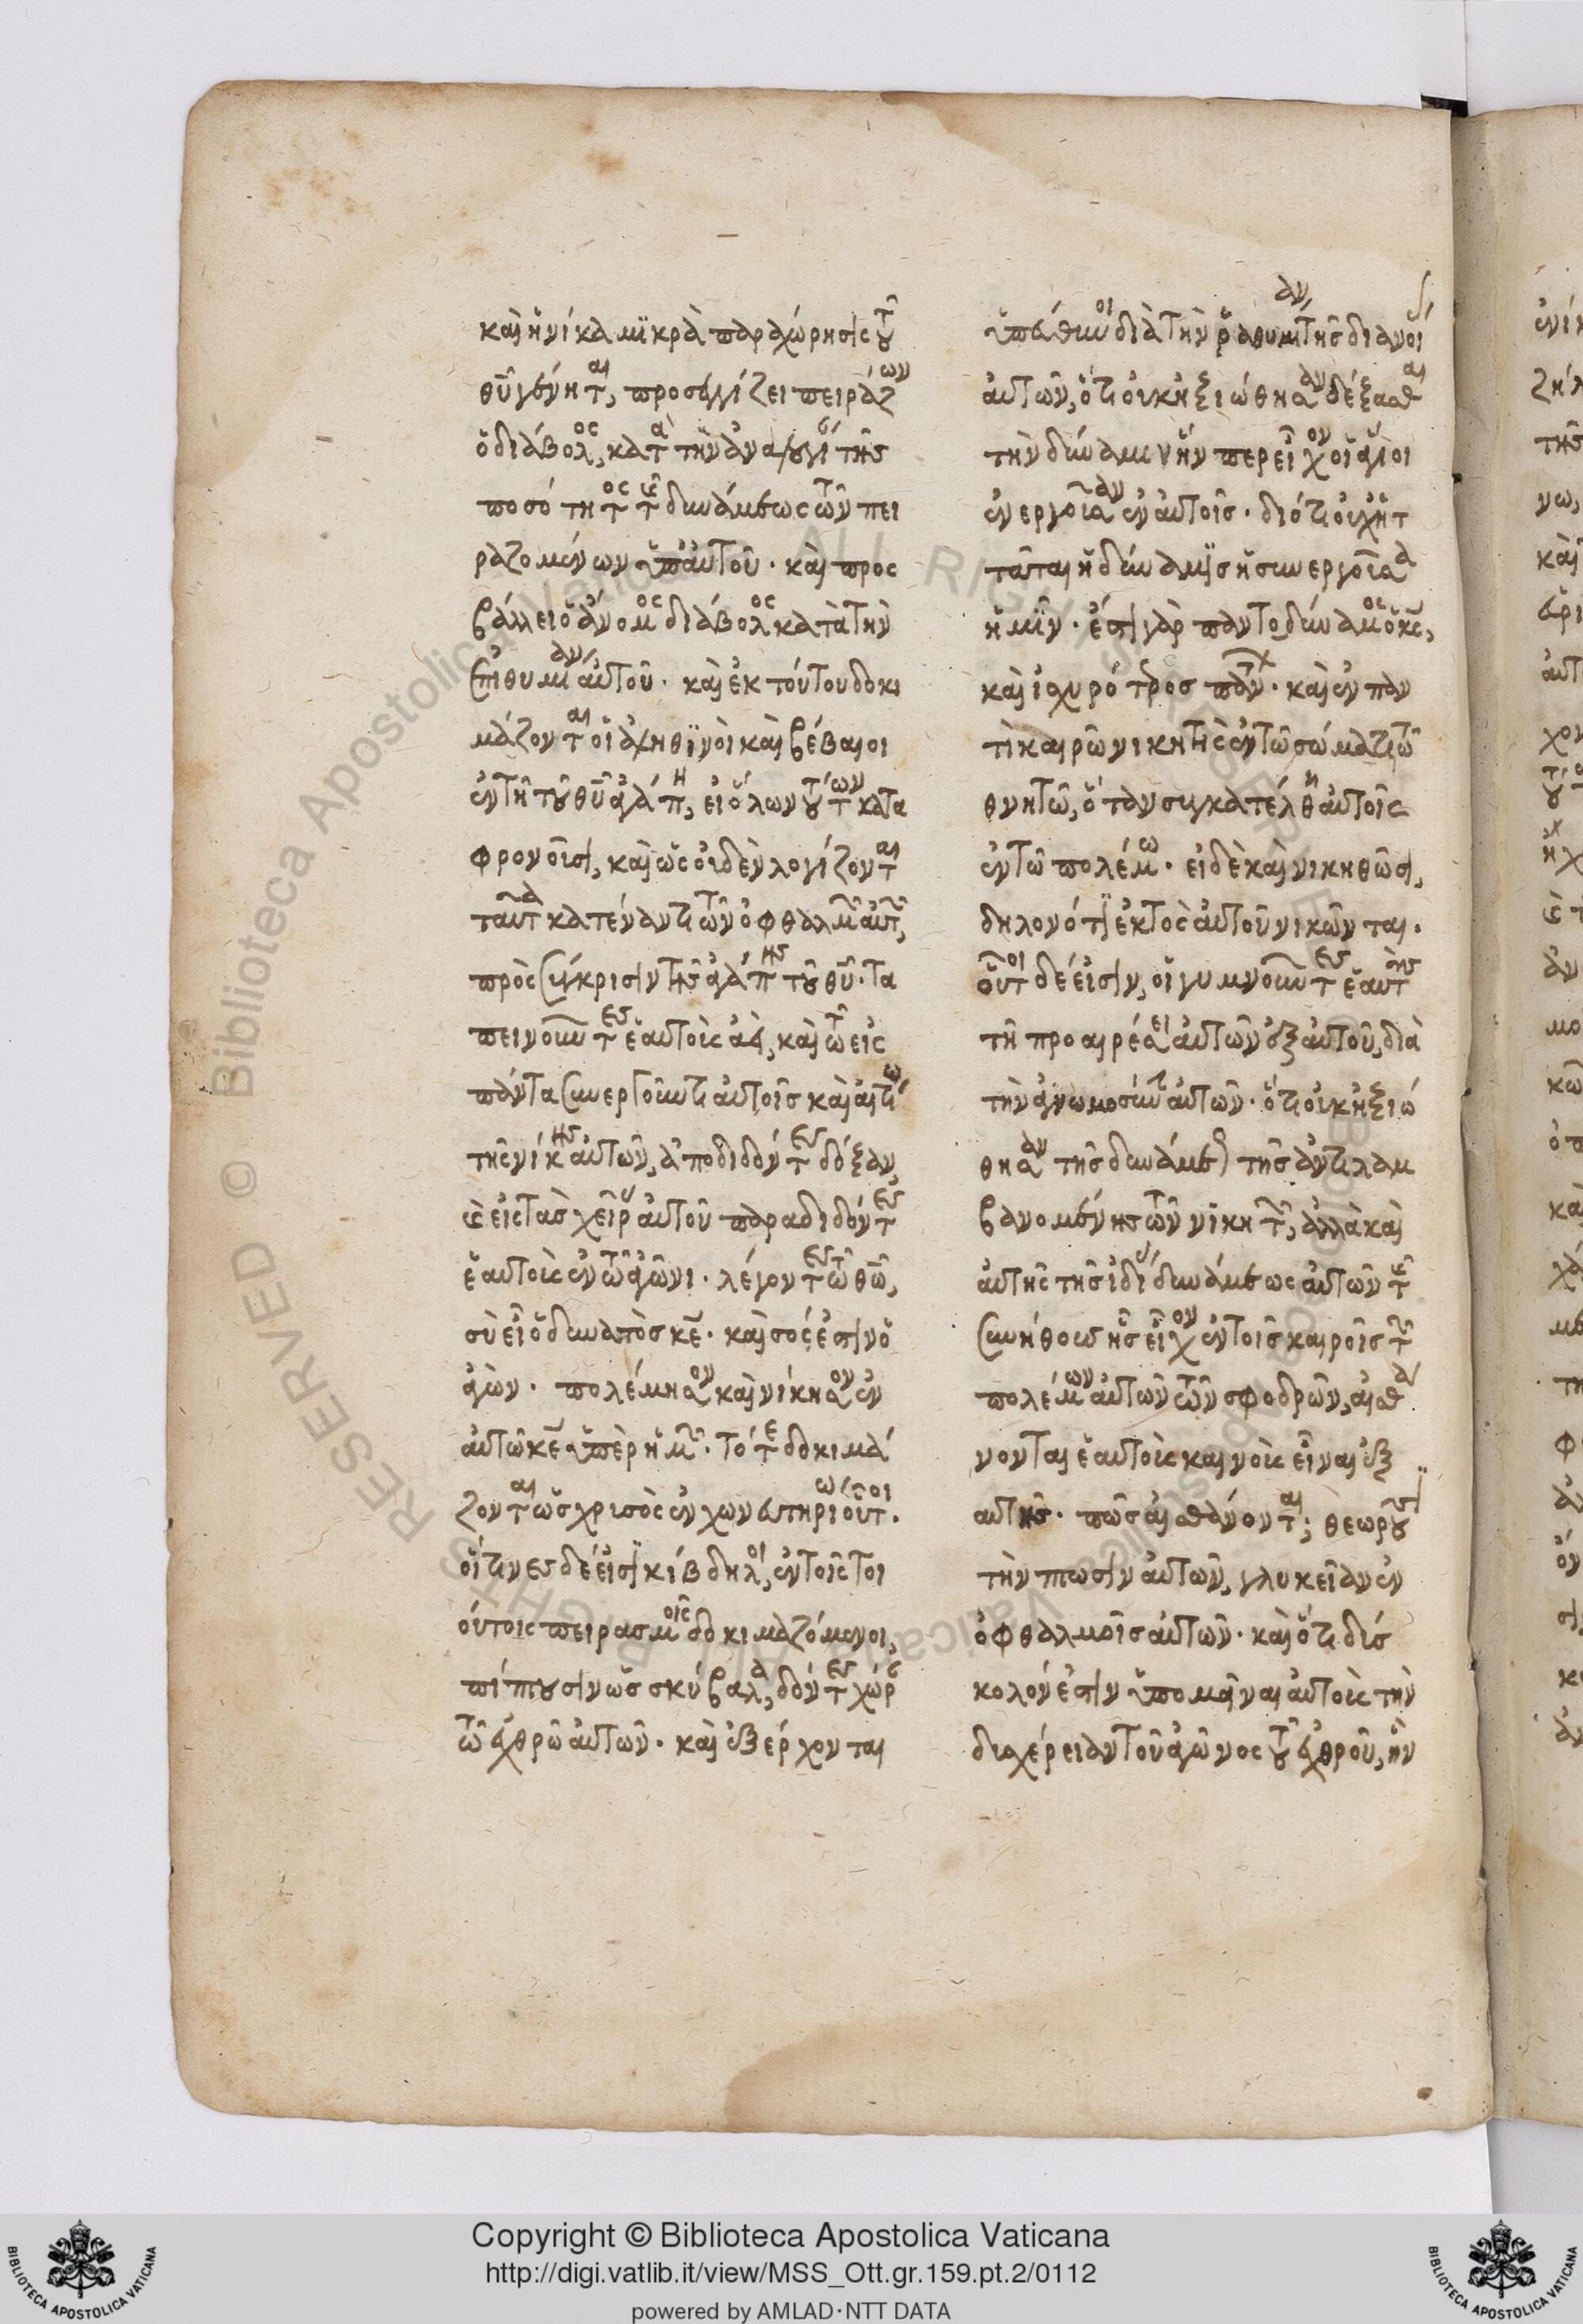 καὶ ἡνίκα μικρὰ παραχώρησις τοῦ
θυ γένηται, προσεγγίζει πειράζων
ὁ διάβολος, κατὰ τὴν ἀναλογίαν τῆς
ποσότητος τῆς δυνάμεως τῶν πει
ραζομένων ὑπ' αὐτοῦ. καὶ προσ
βάλλει ὁ ἄνομος διάβολος κατὰ τὴν
ἐπιθυμίαν αὐτοῦ. καὶ ἐκ τούτου δοκι
μάζονται οἱ ἀληθινοὶ καὶ βέβαιοι
ἐν τῇ τοῦ θυ ἀγάπῃ, εἰ ὅλων τούτων κατα
φρονοῦσι, καὶ ὡς οὐδὲν λογίζονται
ταῦτα κατέναντι τῶν ὀφθαλμῶν αὐτῶν,
πρὸς σύγκρισιν τῆς ἀγάπης τοῦ θυ. τα
πεινοῦντες ἑαυτοὺς ἀεί, καὶ τῷ εἰς
πάντα συνεργοῦντι αὐτοῖς καὶ αἰτίῳ
τῆς νίκης αὐτῶν, ἀποδιδόντες δόξαν,
καὶ εἰς τὰς χεῖρας αὐτοῦ παραδιδόντες
ἑαυτοὺς ἐν τῷ ἀγῶνι. λέγοντες τῷ θω,
σὺ εἶ ὁ δυνατὸς κε. καὶ σός ἐστιν ὁ
ἀγών. πολέμησον καὶ νίκησον ἐν
αὐτῷ κε ὑπὲρ ἡμῶν. τότε δοκιμά
ζονται ὡς χρυσὸς ἐν χωνευτηρίῳ οὗτοι.
οἵτινες δέ εἰσι κίβδηλοι, ἐν τοῖς τοι
ούτοις πειρασμοῖς δοκιμαζόμενοι,
πίπτουσιν ὡς σκύβαλα, δόντες χώραν
τῷ ἐχθρῷ αὐτῶν. καὶ ἐξέρχονται
ὑπεύθυνοι διὰ τὴν ῥαθυμίαν τῆς διανοίας
αὐτῶν, ὅτι οὐκ ἠξιώθησαν δέξασθαι
τὴν δύναμιν ἣν περ εἶχον οἱ ἅγιοι
ἐνεργοῦσαν ἐν αὐτοῖς. διότι οὐχ ἡτ
τᾶται ἡ δύναμις ἡ συνεργοῦσα
ἡμῖν. ἔστι γὰρ παντοδύναμος ὁ κς,
καὶ ἰσχυρότερος πάντων. καὶ ἐν παν
τὶ καιρῷ νικητὴς ἐν τῷ σώματι τῷ
θνητῷ, ὅταν συγκατέλθῃ αὐτοῖς
ἐν τῷ πολέμῳ. εἰ δὲ καὶ νικηθῶσι,
δῆλον ὅτι ἐκτὸς αὐτοῦ νικῶνται.
οὗτοι δέ εἰσιν, οἱ γυμνοῦντες ἑαυτοὺς
τῇ προαιρέσει αὐτῶν ἐξ αὐτοῦ, διὰ
τὴν ἀγνωμοσύνην αὐτῶν. ὅτι οὐκ ἠξιώ
θησαν τῆς δυνάμεως τῆς ἀντιλαμ
βανομένης τῶν νικητῶν, ἀλλὰ καὶ
αὐτῆς τῆς ἰδίας δυνάμεως αὐτῶν τῆς
συνήθους ἧς εἶχον ἐν τοῖς καιροῖς τῶν
πολέμων αὐτῶν τῶν σφοδρῶν, αἰσθά
νονται ἑαυτοὺς κενοὺς εἶναι ἐξ
αὐτῆς. πῶς αἰσθάνονται; θεωροῦσι
τὴν πτῶσιν αὐτῶν, γλυκεῖαν ἐν
ὀφθαλμοῖς αὐτῶν. καὶ ὅτι δύσ
κολόν ἐστιν ὑπομεῖναι αὐτοὺς τὴν
δυσχέρειαν τοῦ ἀγῶνος τοῦ ἐχθροῦ, ἣν
Copyright © Biblioteca Apostolica Vaticana
http://digi.vatlib.it/view/MSS_Ott.gr.159.pt.2/0112
powered by AMLAD·NTT DATA